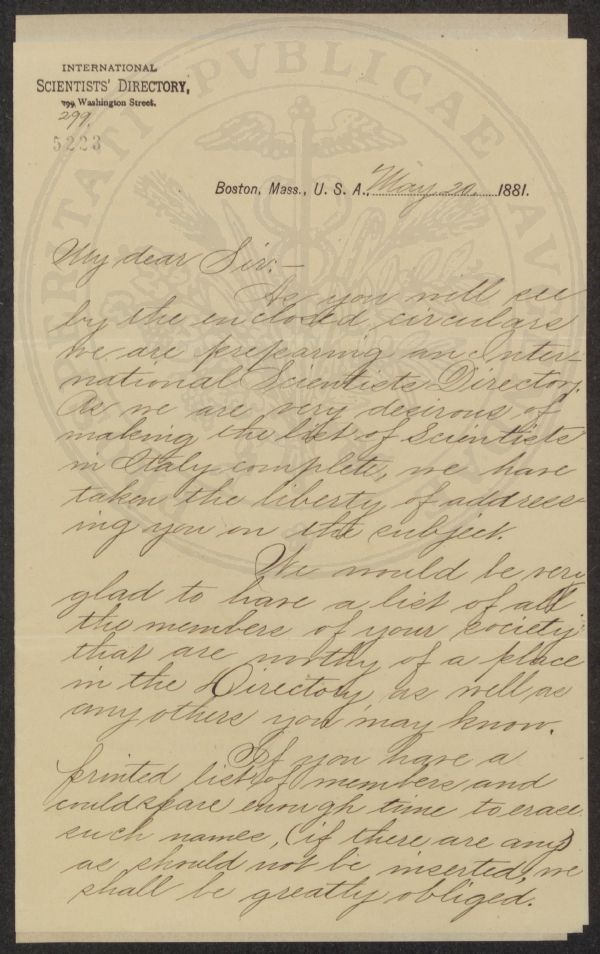 INTERNATIONAL
SCIENTISTS' DIRECTORY,
299, Washington Street.
299.
5223
Boston, Mass., U. S. A., May 20, 1881.
My dear Sir:—
As you will see
by the enclosed circulars
we are preparing an Inter-
national Scientists Directory.
As we are very desirous of
making the list of Scientists
in Italy complete, we have
taken the liberty of address-
ing you on the subject.
We would be very
glad to have a list of all
the members of your society
that are worthy of a place
in the Directory as well as
any others you may know.
If you have a
printed list of members and
could spare enough time to erase
such names, (if there are any)
as should not be inserted, we
shall be greatly obliged.